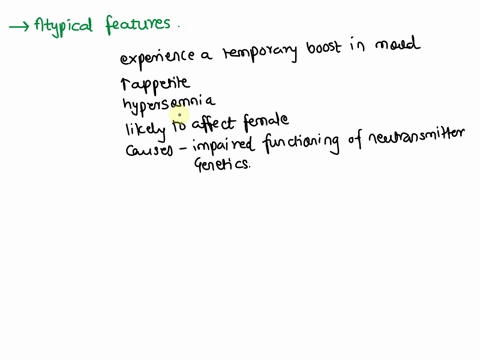 → Atypical features.
experience a temporary boost in mood
↑appetite
hypersomnia
likely to affect female
causes - impaired functioning of neutransmitter
Genetics.